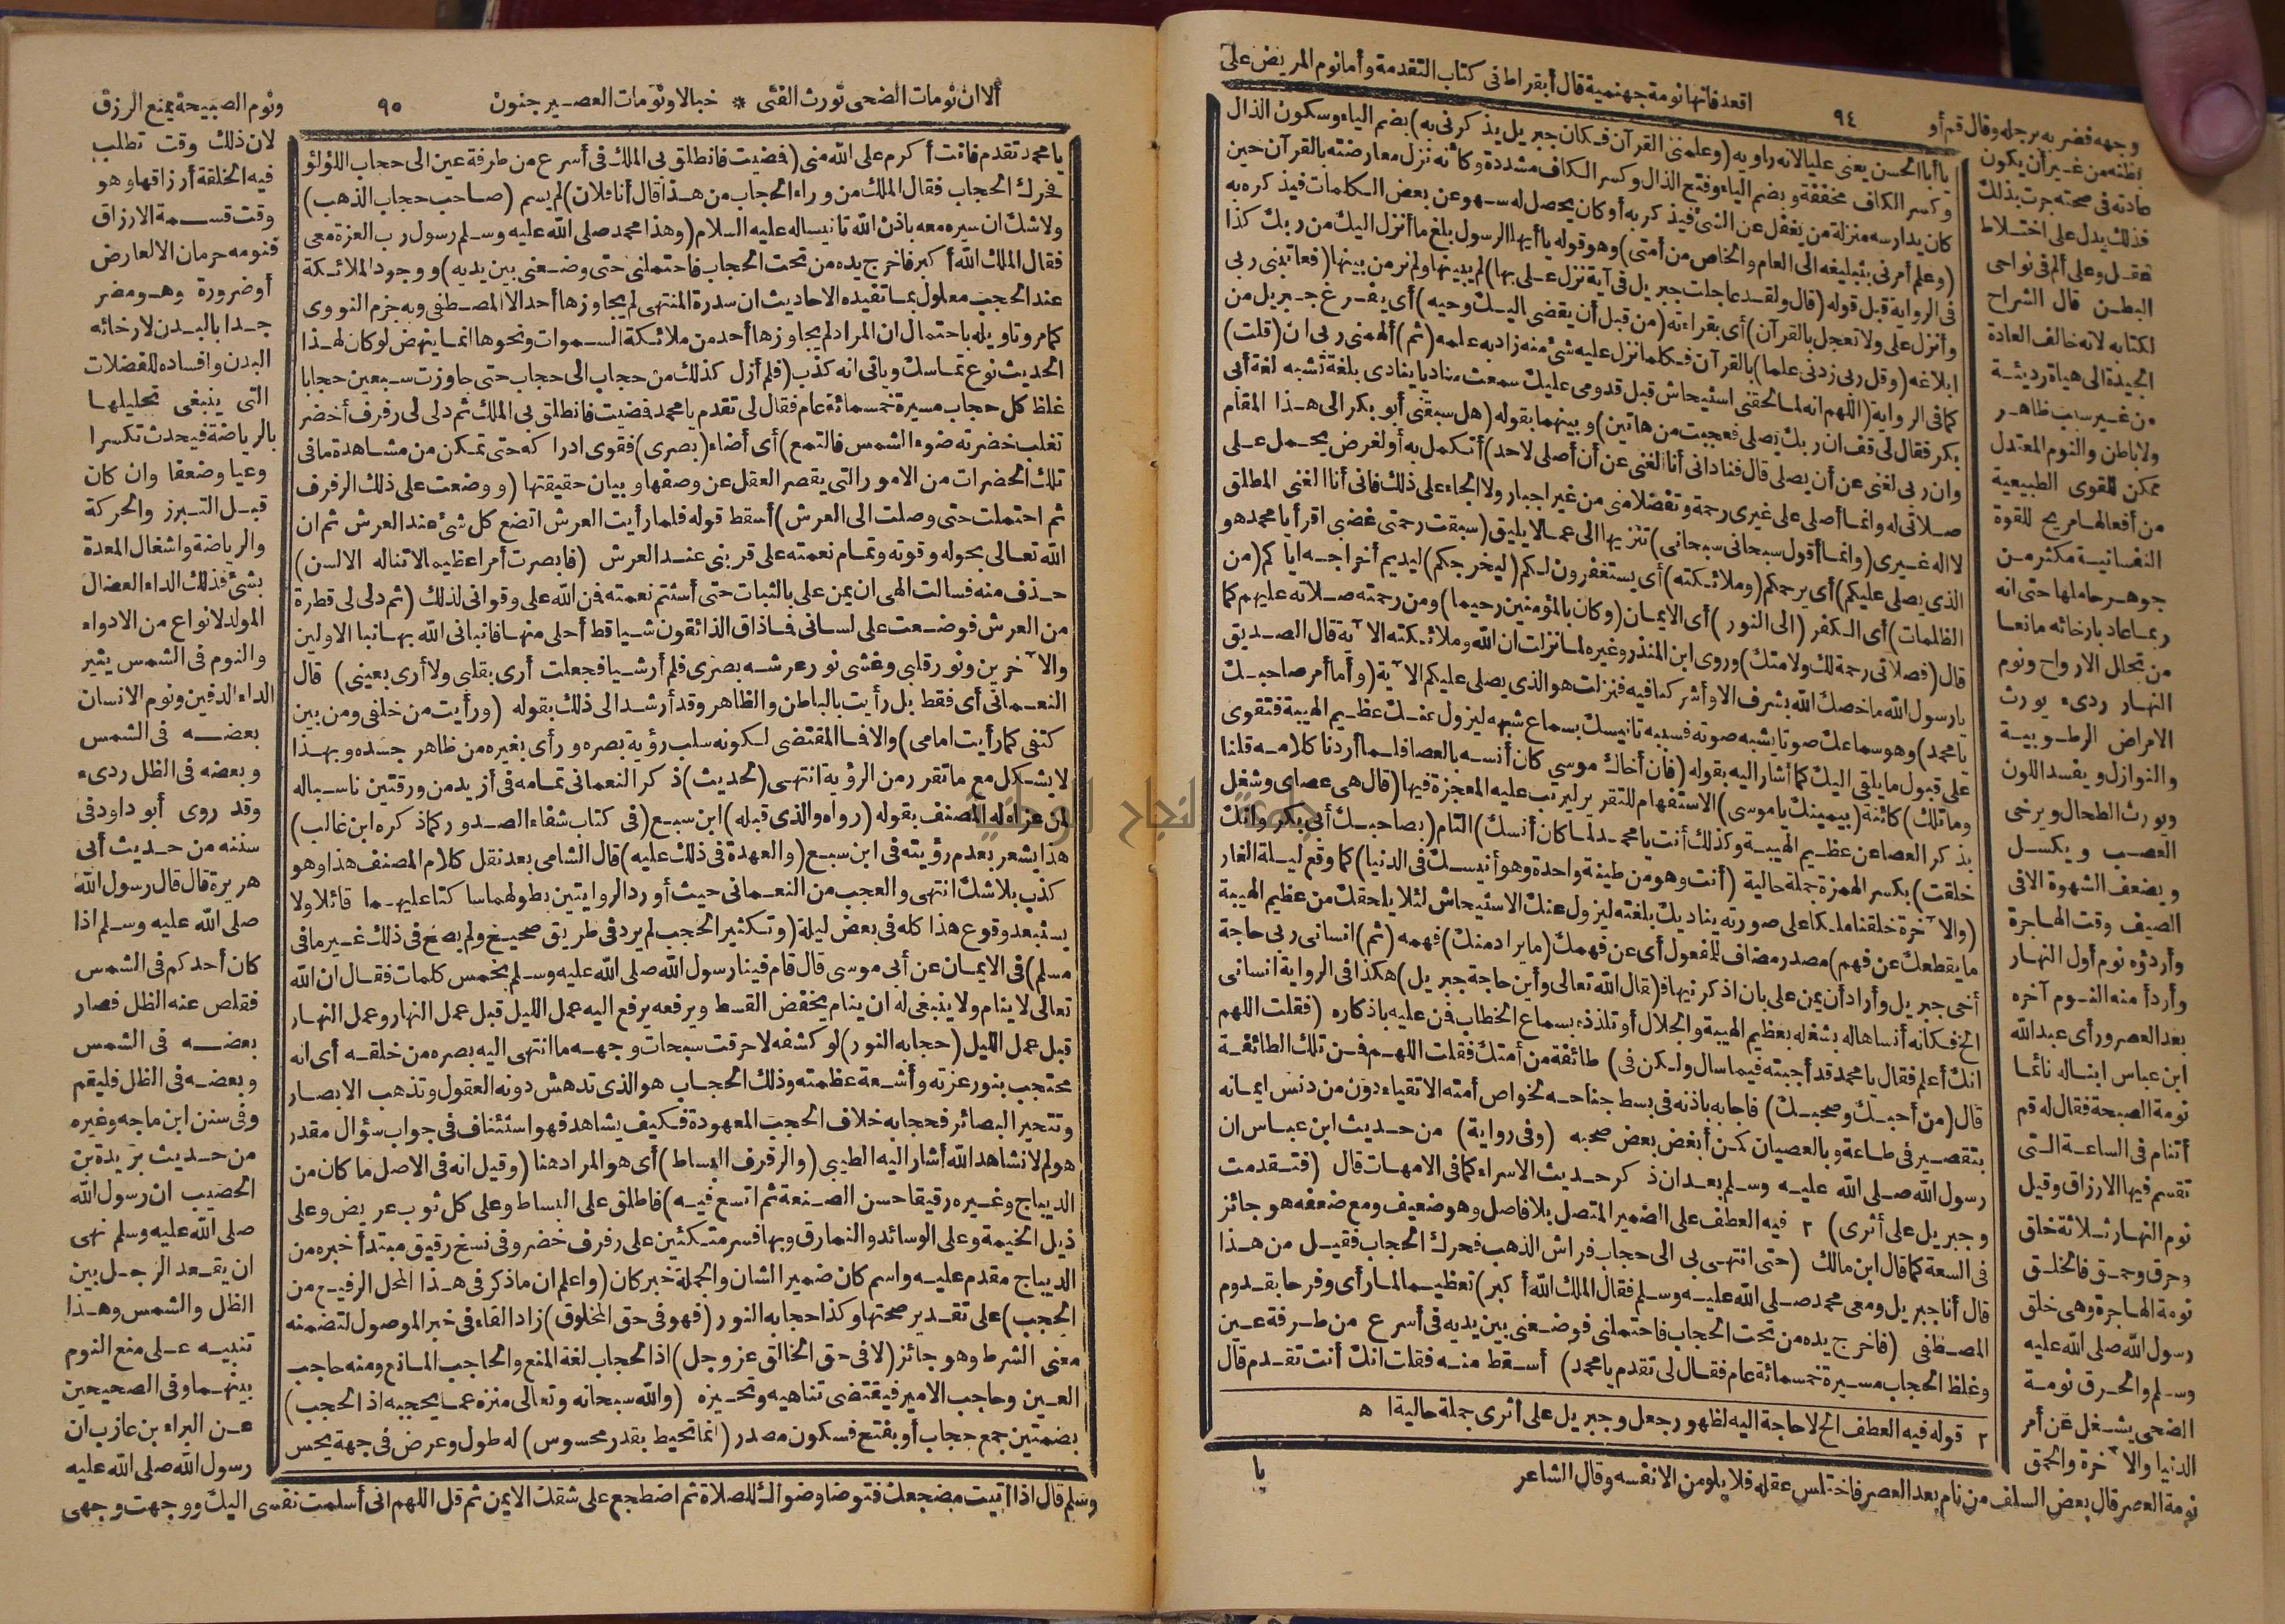 اقعد فانها نومة جهنمية قال أبقراط في كتاب التقدمة وأما نوم المريض على
٩٤
وجهه فضربه برجله وقال قم أو
بطنه من غير أن يكون
عادته في صحته جرت بذلك
فذلك يدل على اختلاط
عقل وعلى ألم في نواحي
البطن قال الشراح
لكتابه لانه خالف العادة
الجيدة الى هيأة رديئة
من غير سبب ظاهر
ولا باطن والنوم المعتدل
ممكن للقوى الطبيعية
من أفعالها مريح للقوة
النفسانية مكثر من
جوهر حاملها حتى انه
ربما عاد بارخائه مانعا
من تحلل الارواح ونوم
النهار ردىء يورث
الامراض الرطوبية
والنوازل ويفسد اللون
ويورث الطحال ويرخي
العصب ويكسل
ويضعف الشهوة الا في
الصيف وقت الهاجرة
وأردؤه نوم أول النهار
وأردأ منه النوم آخره
بعد العصر ورأى عبد الله
ابن عباس ابنا له نائما
نومة الصبحة فقال له قم
أتنام في الساعة التي
تقسم فيها الارزاق وقيل
نوم النهار ثلاثة خلق
وحرق وحمق فالخلق
نومة الهاجرة وهي خلق
رسول الله صلى الله عليه
وسلم والحرق نومة
الضحى يشغل عن أمر
الدنيا والآخرة والحمق
نومة العصر قال بعض السلف من نام بعد العصر فاختلس عقله فلا يلومن الا نفسه وقال الشاعر
يا أبا الحسن يعني عليا لانه راويه (وعلمني القرآن فكان جبريل يذكرني به) بضم الياء وسكون الذال
وكسر الكاف مخففة وبضم الياء وفتح الذال وكسر الكاف مشددة وكأنه نزل معارضته بالقرآن حين
كان يدارسه منزلة من يغفل عن الشئ فيذكر به أو كان يحصل له سهو عن بعض الكلمات فيذكره به
(وعلم أمرني بتبليغه الى العام والخاص من أمتي) وهو قوله يا أيها الرسول بلغ ما أنزل اليك من ربك كذا
في الرواية قبل قوله (قال ولقد عاجلت جبريل في آية نزل على بها) لم يبينها ولم نر من بينها (فعاتبني ربي
وأنزل على ولا تعجل بالقرآن) أي بقراءته (من قبل أن يقضى اليك وحيه) أي يفرغ جبريل من
ابلاغه (وقل ربي زدني علما) بالقرآن فكلما نزل عليه شئ منه زاد به علمه (ثم) ألهمني ربي ان (قلت)
كما في الرواية (اللهم انه لما لحقني استيحاش قبل قدومي عليك سمعت مناديا ينادى بلغة تشبه لغة أبي
بكر فقال لي قف ان ربك يصلى فعجبت من هاتين) وبينهما بقوله (هل سبقني أبو بكر الى هذا المقام
وان ربي لغني عن أن يصلى قال فناداني أنا الغني عن أن أصلى لاحد) أتكمل به أو لغرض يحمل على
صلاتي له وانما أصلى على غيري رحمة وتفضلا مني من غير اجبار ولا الجاء على ذلك فاني أنا الغني المطلق
لا اله غيري (وانما أقول سبحاني سبحاني) تنزيها الى عما لا يليق (سبقت رحمتي غضبي اقرأ يا محمد هو
الذي يصلى عليكم) أي يرحمكم (وملائكته) أي يستغفرون لكم (ليخرجكم) ليديم اخراجه اياكم (من
الظلمات) أي الكفر (الى النور) أي الايمان (وكان بالمؤمنين رحيما) ومن رحمته صلاته عليهم كما
قال (فصلاتي رحمة لك ولامتك) وروى ابن المنذر وغيره لما نزلت ان الله وملائكته الآية قال الصديق
يا رسول الله ما خصك الله بشرف الا وأشركنا فيه فنزلت هو الذي يصلى عليكم الآية (وأما أمر صاحبك
يا محمد) وهو سماعك صوتا يشبه صوته فسببه تأنيسك بسماع شبهه ليزول عنك عظيم الهيبة فتقوى
على قبول ما يلقى اليك كما أشار اليه بقوله (فان أخاك موسي كان أنسه بالعصا فلما أردنا كلامه قلنا
وما تلك) كائنة (بيمينك يا موسى) الاستفهام للتقرير ليرتب عليه المعجزة فيها (قال هي عصاى وشغل
بذكر العصا عن عظيم الهيبة وكذلك أنت يا محمد لما كان أنسك) التام (بصاحبك أبي بكر وانك
خلقت) بكسر الهمزة جملة حالية (أنت وهو من طينة واحدة وهو أنيسك في الدنيا) كما وقع ليلة الغار
(والآخرة خلقنا ملكا على صورته يناديك بلغته ليزول عنك الاستيحاش لئلا يلحقك من عظيم الهيبة
ما يقطعك عن فهم) مصدر مضاف للمفعول أي عن فهمك (ما يراد منك) فهمه (ثم) انساني ربي حاجة
أخي جبريل وأراد أن يمن على بان اذكر نيها ف(قال الله تعالى وأين حاجة جبريل) هكذا في الرواية انساني
الخ فكأنه أنساها له بشغله بعظيم الهيبة والجلال أو تلذذه بسماع الخطاب فمن عليه باذكاره (فقلت اللهم
انك أعلم فقال يا محمد قد أجبته فيما سال ولكن في) طائفة من أمتك فقلت اللهم فمن تلك الطائفة
قال (من أحبك وصحبك) فاجابه باذنه في بسط جناحه لخواص أمته الاتقياء دون من دنس ايمانه
بتقصير في طاعة وبالعصيان كمن أبغض بعض صحبه (وفي رواية) من حديث ابن عباس ان
رسول الله صلى الله عليه وسلم بعد ان ذكر حديث الاسراء كما في الامهات قال (فتقدمت
وجبريل على أثرى) ٢ فيه العطف على الضمير المتصل بلا فاصل وهو ضعيف ومع ضعفه هو جائز
في السعة كما قال ابن مالك (حتى انتهى بي الى حجاب فراش الذهب فحرك الحجاب فقيل من هذا
قال أنا جبريل ومعي محمد صلى الله عليه وسلم فقال الملك الله أكبر) تعظيما لما رأى وفرحا بقدوم
المصطفى (فاخرج يده من تحت الحجاب فاحتملني فوضعني بين يديه في أسرع من طرفة عين
وغلظ الحجاب مسيرة خمسمائة عام فقال لي تقدم يا محمد) أسقط منه فقلت انك أنت تقدم قال
٢ قوله فيه العطف الخ لا حاجة اليه لظهور رجعل وجبريل على أثرى جملة حالية اه
يا
ألا ان نومات الضحى تورث الفتى * خبالا ونومات العصير جنون
٩٥
ونوم الصبيحة يمنع الرزق
لان ذلك وقت تطلب
فيه الخلقة أرزاقها وهو
وقت قسمة الارزاق
فنومه حرمان الا لعارض
أو ضرورة وهو مضر
جدا بالبدن لارخائه
البدن وافساده للفضلات
التي ينبغي تحليلها
بالرياضة فيحدث تكسرا
وعيا وضعفا وان كان
قبل التبرز والحركة
والرياضة واشغال المعدة
بشئ فذلك الداء العضال
المولد لانواع من الادواء
والنوم في الشمس يثير
الداء الدفين ونوم الانسان
بعضه في الشمس
وبعضه في الظل ردىء
وقد روى أبو داود في
سننه من حديث أبي
هريرة قال قال رسول الله
صلى الله عليه وسلم اذا
كان أحدكم في الشمس
فقلص عنه الظل فصار
بعضه في الشمس
وبعضه في الظل فليقم
وفي سنن ابن ماجه وغيره
من حديث بريدة بن
الحصيب ان رسول الله
صلى الله عليه وسلم نهى
ان يقعد الرجل بين
الظل والشمس وهذا
تنبيه على منع النوم
بينهما وفي الصحيحين
عن البراء بن عازب ان
رسول الله صلى الله عليه
وسلم قال اذا أتيت مضجعك فتوضا وضوأك للصلاة ثم اضطجع على شقك الايمن ثم قل اللهم اني أسلمت نفسي اليك ووجهت وجهي
يا محمد تقدم فانت أكرم على الله مني (فمضيت فانطلق بي الملك في أسرع من طرفة عين الى حجاب اللؤلؤ
فحرك الحجاب فقال الملك من وراء الحجاب من هذا قال أنا فلان) لم يسم (صاحب حجاب الذهب)
ولا شك ان سيره معه باذن الله تانيسا له عليه السلام (وهذا محمد صلى الله عليه وسلم رسول رب العزة معي
فقال الملك الله أكبر فاخرج يده من تحت الحجاب فاحتملني حتى وضعني بين يديه) ووجود الملائكة
عند الحجب معلول بما تفيده الاحاديث ان سدرة المنتهى لم يجاوزها أحد الا المصطفى وبه جزم النووى
كما مر وتاويله باحتمال ان المراد لم يجاوزها أحد من ملائكة السموات ونحوها انما ينهض لو كان لهذا
الحديث نوع تماسك وياتي انه كذب (فلم أزل كذلك من حجاب الى حجاب حتى جاوزت سبعين حجابا
غلظ كل حجاب مسيرة خمسمائة عام فقال لي تقدم يا محمد فمضيت فانطلق بي الملك ثم دلى لي رفرف أخضر
تغلب خضرته ضوء الشمس فالتمع) أي أضاء (بصرى) فقوى ادراكه حتى تمكن من مشاهدة ما في
تلك الحضرات من الامور التي يقصر العقل عن وصفها وبيان حقيقتها (ووضعت على ذلك الرفرف
ثم احتملت حتى وصلت الى العرش) أسقط قوله فلما رأيت العرش اتضع كل شئ عند العرش ثم ان
الله تعالى بحوله وقوته وتمام نعمته على قربني عند العرش (فابصرت أمرا عظيما لا تناله الالسن)
حذف منه فسالت الهى ان يمن على بالثبات حتى أستتم نعمته فمن الله على وقواني لذلك (ثم دلى لي قطرة
من العرش فوضعت على لساني فما ذاق الذائقون شيا قط أحلى منها فانباني الله بها نبا الاولين
والآخرين ونور قلبي وغشى نور عرشه بصرى فلم أر شيا فجعلت أرى بقلبي ولا أرى بعيني) قال
النعماني أي فقط بل رأيت بالباطن والظاهر وقد أرشد الى ذلك بقوله (ورأيت من خلفي ومن بين
كتفي كما رأيت امامي) والا فما المقتضى لكونه سلب رؤية بصره ورأى بغيره من ظاهر جسده وبهذا
لا يشكل مع ما تقرر من الرؤية انتهى (الحديث) ذكر النعماني تمامه في أزيد من ورقتين ناسبا له
لمن عزاه له المصنف بقوله (رواه والذي قبله) ابن سبع (في كتاب شفاء الصدور كما ذكره ابن غالب)
هذا يشعر بعدم رؤيته في ابن سبع (والعهدة في ذلك عليه) قال الشامي بعد نقل كلام المصنف هذا وهو
كذب بلا شك انتهى والعجب من النعماني حيث أورد الروايتين بطولهما ساكتا عليهما قائلا ولا
يستبعد وقوع هذا كله في بعض ليلة (وتكثير الحجب لم يرد في طريق صحيح ولم يصح في ذلك غير ما في
مسلم) في الايمان عن أبي موسى قال قام فينا رسول الله صلى الله عليه وسلم بخمس كلمات فقال ان الله
تعالى لا ينام ولا ينبغي له ان ينام يخفض القسط ويرفعه يرفع اليه عمل الليل قبل عمل النهار وعمل النهار
قبل عمل الليل (حجابه النور) لو كشفه لاحرقت سبحات وجهه ما انتهى اليه بصره من خلقه أي انه
محتجب بنور عزته وأشعة عظمته وذلك الحجاب هو الذي تدهش دونه العقول وتذهب الابصار
وتتحير البصائر فحجابه خلاف الحجب المعهودة فكيف يشاهد فهو استئناف في جواب سؤال مقدر
هو لم لا نشاهد الله أشار اليه الطيبي (والرفرف البساط) أي هو المراد هنا (وقيل انه في الاصل ما كان من
الديباج وغيره رقيقا حسن الصنعة ثم اتسع فيه) فاطلق على البساط وعلى كل ثوب عريض وعلى
ذيل الخيمة وعلى الوسائد والنمارق وبها فسر متكئين على رفرف خضر وفي نسخ رقيق مبتدأ خبره من
الديباج مقدم عليه واسم كان ضمير الشان والجملة خبر كان (واعلم ان ما ذكر في هذا المحل الرفيع من
الحجب) على تقدير صحتها وكذا حجابه النور (فهو في حق المخلوق) زاد الفاء في خبر الموصول لتضمنه
معنى الشرط وهو جائز (لا في حق الخالق عز وجل) اذ الحجاب لغة المنع والحاجب المانع ومنه حاجب
العين وحاجب الامير فيقتضي تناهيه وتحيزه (والله سبحانه وتعالى منزه عما يحجبه اذ الحجب)
بضمتين جمع حجاب أو بفتح فسكون مصدر (انما تحيط بقدر محسوس) له طول وعرض في جهة يحس